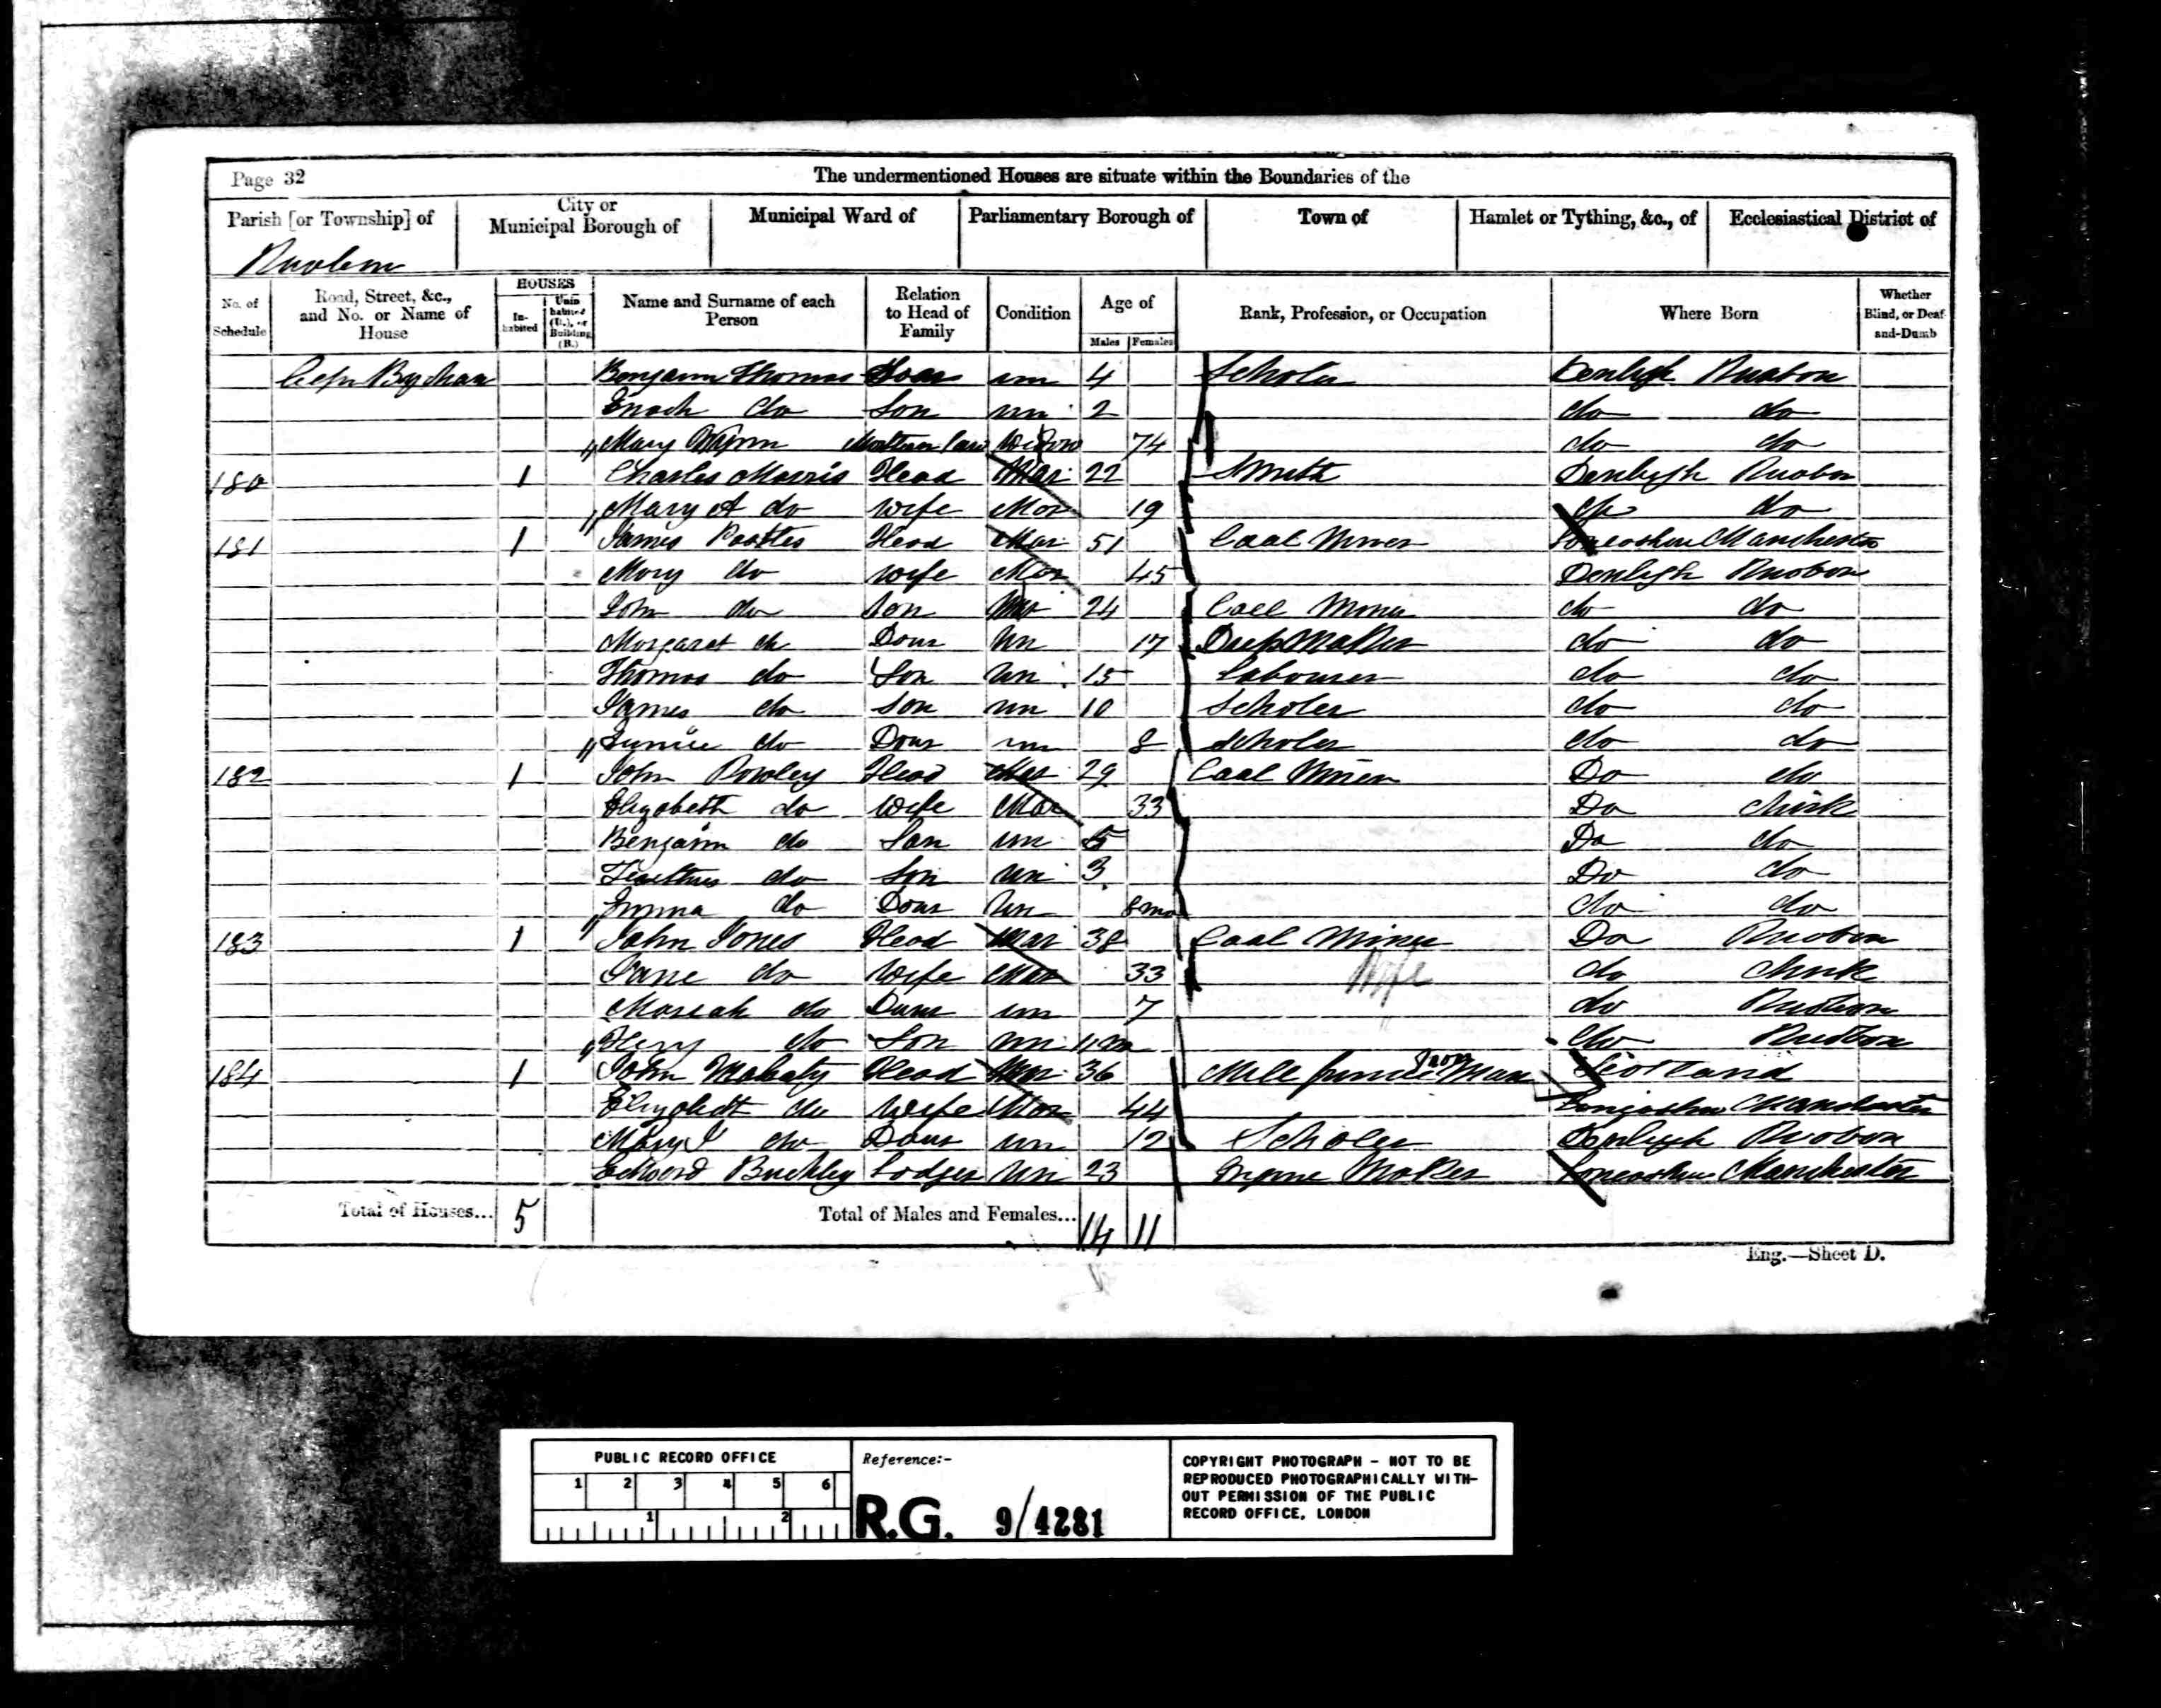 Page 32
The undermentioned Houses are situate within the Boundaries of the
Parish [or Township] of
City or Municipal Borough of
Municipal Ward of
Parliamentary Borough of
Town of
Hamlet or Tything, &c., of
Ecclesiastical District of
Ruabon
No. of Schedule
Road, Street, &c., and No. or Name of House
HOUSES
Inhabited
Uninhabited (U.), or Building (B.)
Name and Surname of each Person
Relation to Head of Family
Condition
Age of
Males
Females
Rank, Profession, or Occupation
Where Born
Whether Blind, or Deaf-and-Dumb
Cefn Bychan Benjamin Thomas Son un 4 Scholar Denbigh Ruabon
Enoch do Son un 2 do do
Mary Wynn Mother in law Widow 74 do do
180 1 Charles Morris Head Mar 22 Smith Denbigh Ruabon
Mary A do Wife Mar 19 do do
181 1 James Head Mar 51 Coal Miner Lancashire Manchester
Mary do Wife Mar 45 Denbigh Ruabon
John do Son Un 24 Coal Miner do do
Margaret do Daur Un 17 Maker do do
Thomas do Son Un 15 Labourer do do
James do Son un 10 Scholar do do
Eunice do Daur un 8 Scholar do do
182 1 John Rowley Head Mar 29 Coal Miner Do do
Elizabeth do Wife Mar 33 Do Chirk
Benjamin do Son un 5 Do do
do Son Un 3 Do do
Emma do Daur Un 8 mo do do
183 1 John Jones Head Mar 38 Coal Miner Do Ruabon
Jane do Wife Mar 33 Wife do Chirk
Mareah do Daur un 7 do Ruabon
Heny do Son un 11 m do Ruabon
184 1 John Head Mar 36 Mill furnace Iron Man Scotland
Elizabeth do Wife Mar 44 Lancashire Manchester
Mary J do Daur un 12 Scholar Denbigh Ruabon
Edward Buckley Lodger Un 23 Engine Maker Lancashire Manchester
Total of Houses... 5
Total of Males and Females... 14 11
Eng.—Sheet D.
PUBLIC RECORD OFFICE
1 2 3 4 5 6
1 2
Reference:-
R.G. 9/4281
COPYRIGHT PHOTOGRAPH - NOT TO BE
REPRODUCED PHOTOGRAPHICALLY WITH-
OUT PERMISSION OF THE PUBLIC
RECORD OFFICE, LONDON